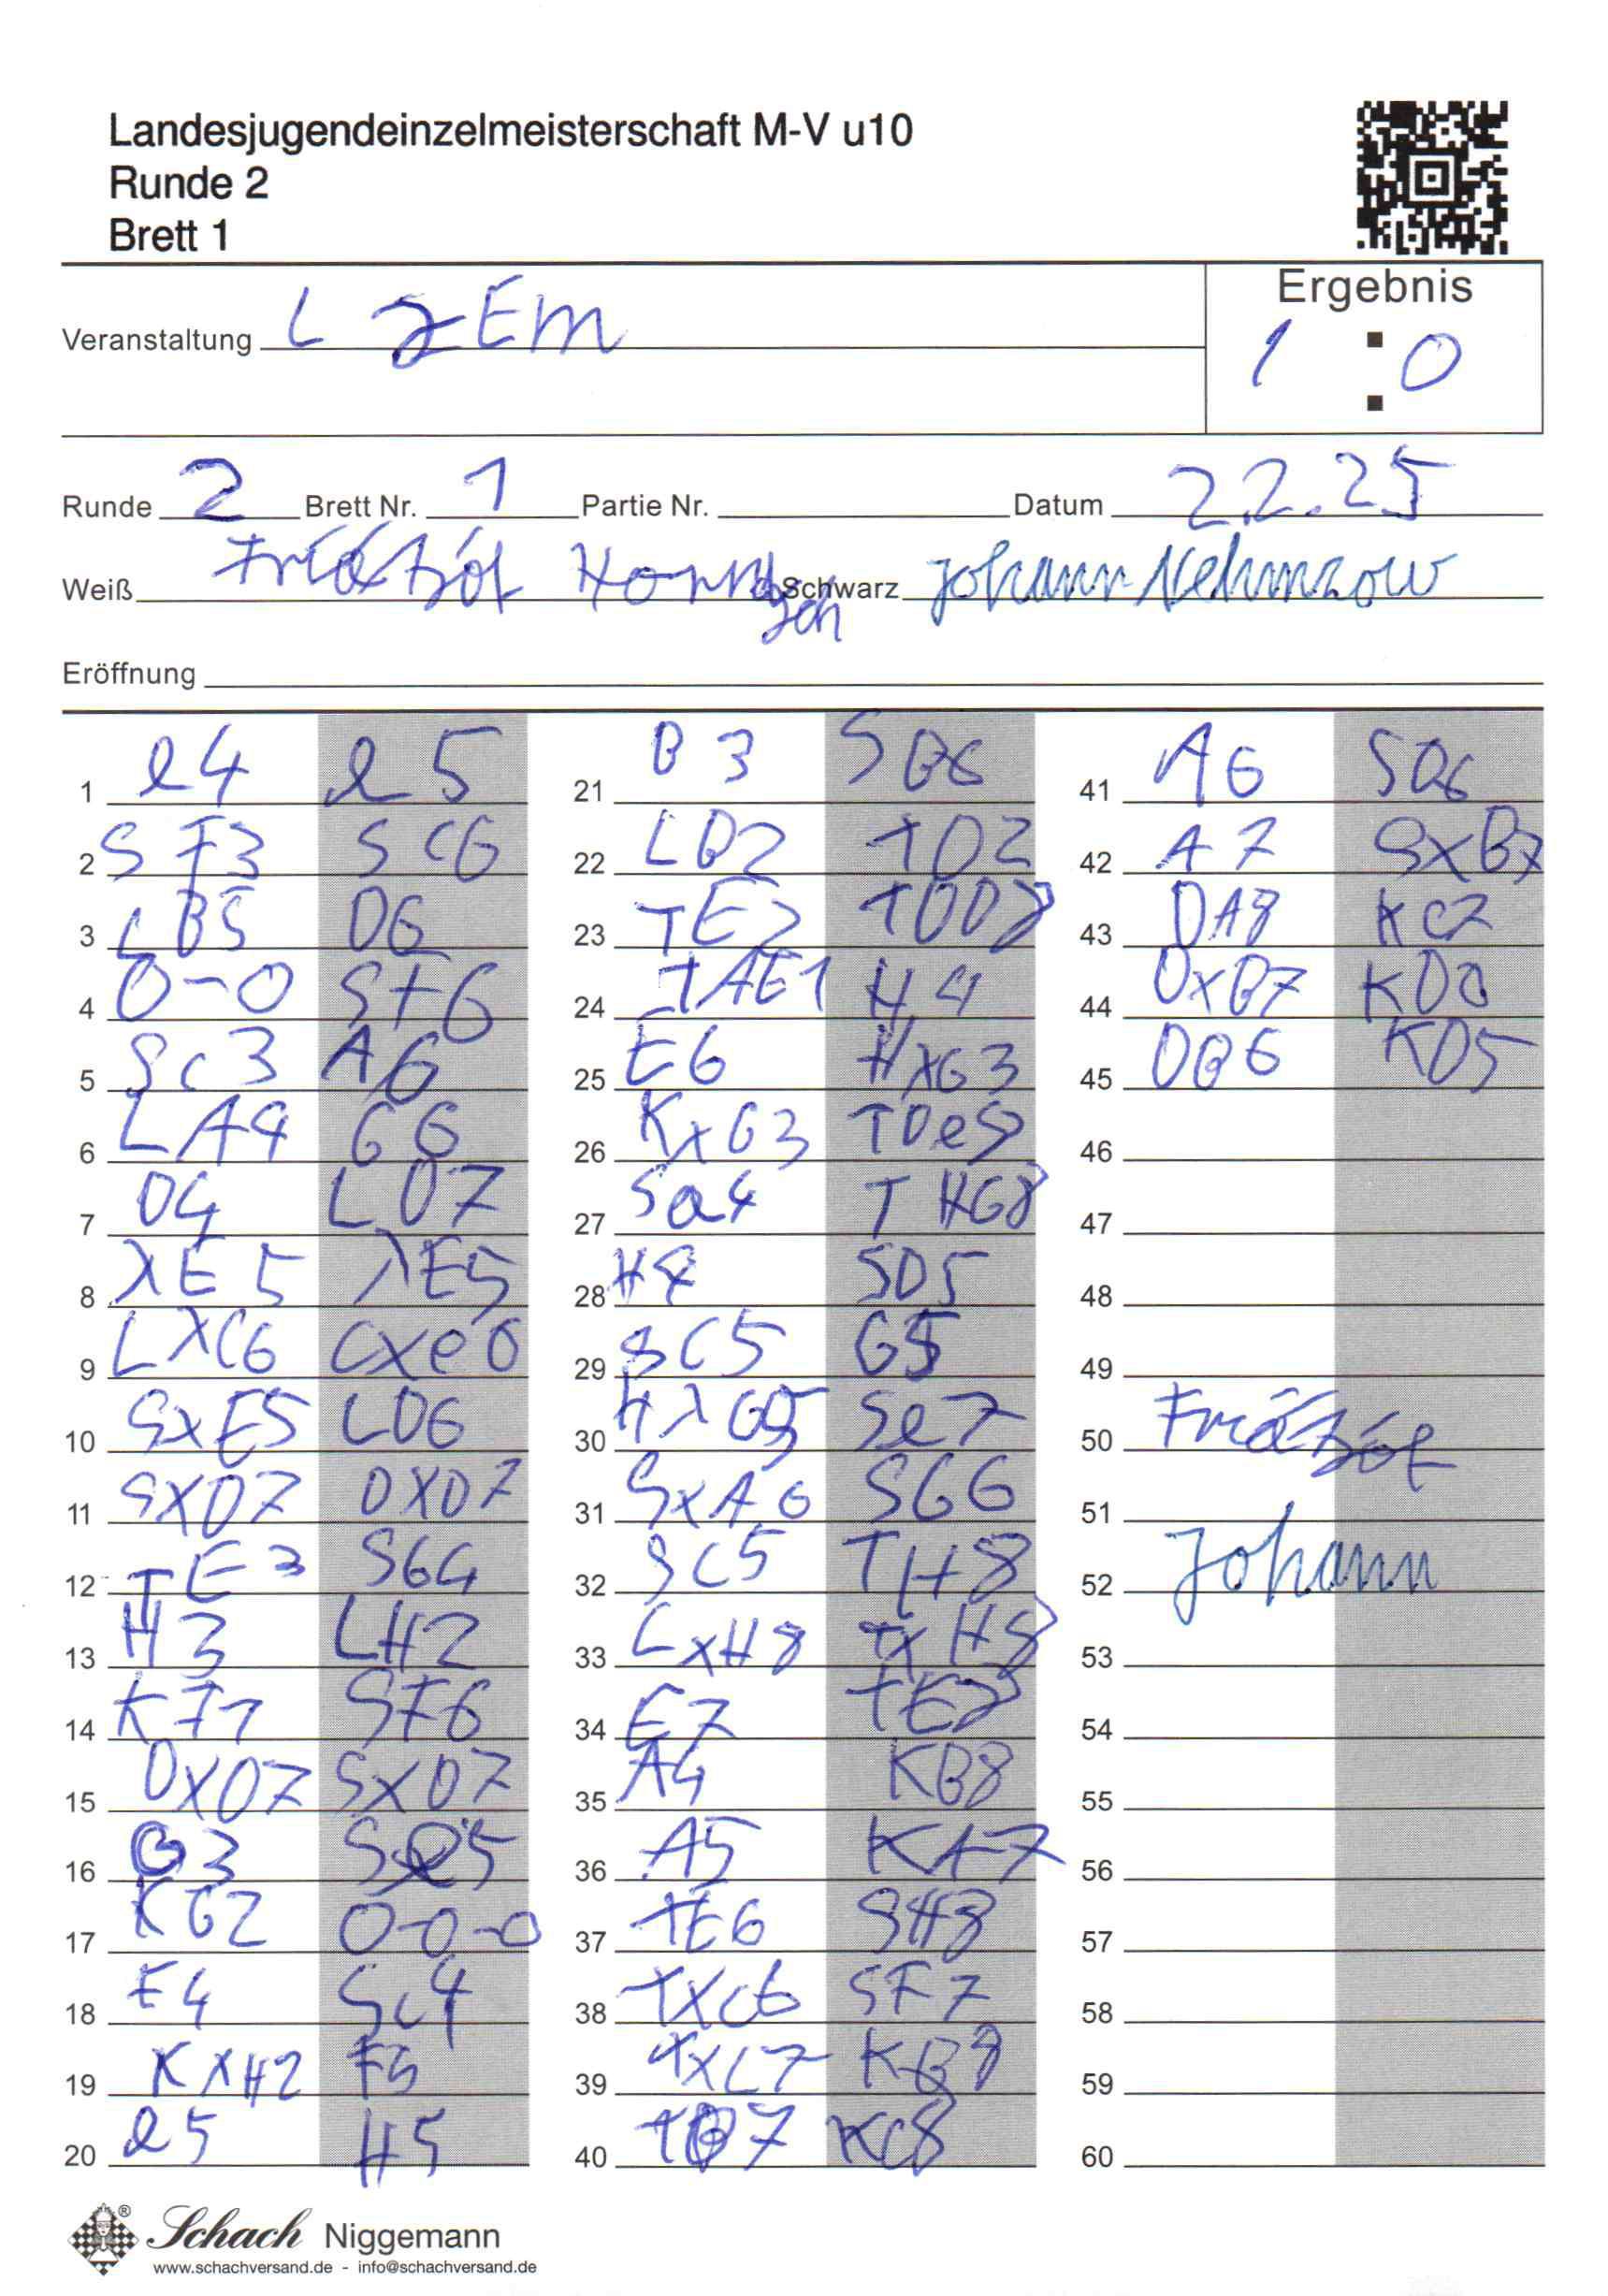 Landesjugendeinzelmeisterschaft M-V u10
Runde 2
Brett 1
Ergebnis
Veranstaltung L JEM
1 : 0
Runde 2 Brett Nr. 1 Partie Nr. Datum 22.25
Weiß Schwarz Johann Nehmzow
Eröffnung
1 e4 e5
2 SF3 SC6
3 LB5 D6
4 0-0 SF6
5 SC3 A6
6 LA4 G6
7 D4 LD7
8 XE5 XE5
9 LXC6 CXe6
10 SXE5 LD6
11 SXD7 DXD7
12 TE3 SG4
13 H3 LH2
14 KF1 SF6
15 DXD7 SXD7
16 G3 Se5
17 KG2 0-0-0
18 F4 SC4
19 KXH2 F5
20 e5 H5
21 B3 SB6
22 LB2 TD2
23 TE2 TDD8
24 TAE1 H4
25 E6 HXG3
26 KXG3 TDe8
27 Sa4 THG8
28 H4 SD5
29 SC5 G5
30 HXG5 Se7
31 SXA6 SG6
32 SC5 TH8
33 LXH8 TXH8
34 E7 TE8
35 A4 KB8
36 A5 KA7
37 TE6 SH8
38 TXC6 SF7
39 TXC7 KB8
40 TB7 KC8
41 A6 SD6
42 A7 SXB7
43 DA8 KC7
44 DXB7 KD6
45 DB6 KD5
46
47
48
49
50
51
52 Johann
53
54
55
56
57
58
59
60
® Schach Niggemann
www.schachversand.de - info@schachversand.de